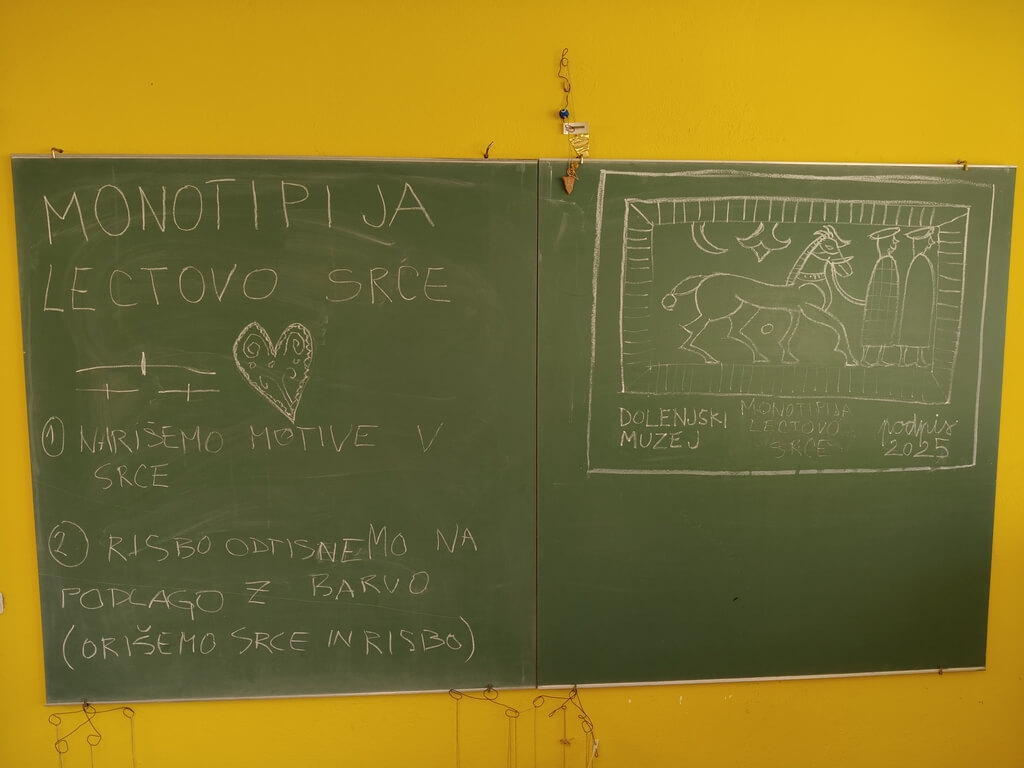 MONOTIPIJA
LECTOVO SRČE
1 NARIŠEMO MOTIVE V
SRCE
2. RISBO ODTISNEMO NA
PODLAGO Z BARVO
(ORIŠEMO SRCE IN RISBO)
DOLENJSKI
MUZEJ
MONOTIPIJA
LECTOVO
SRCE
podpis
2025